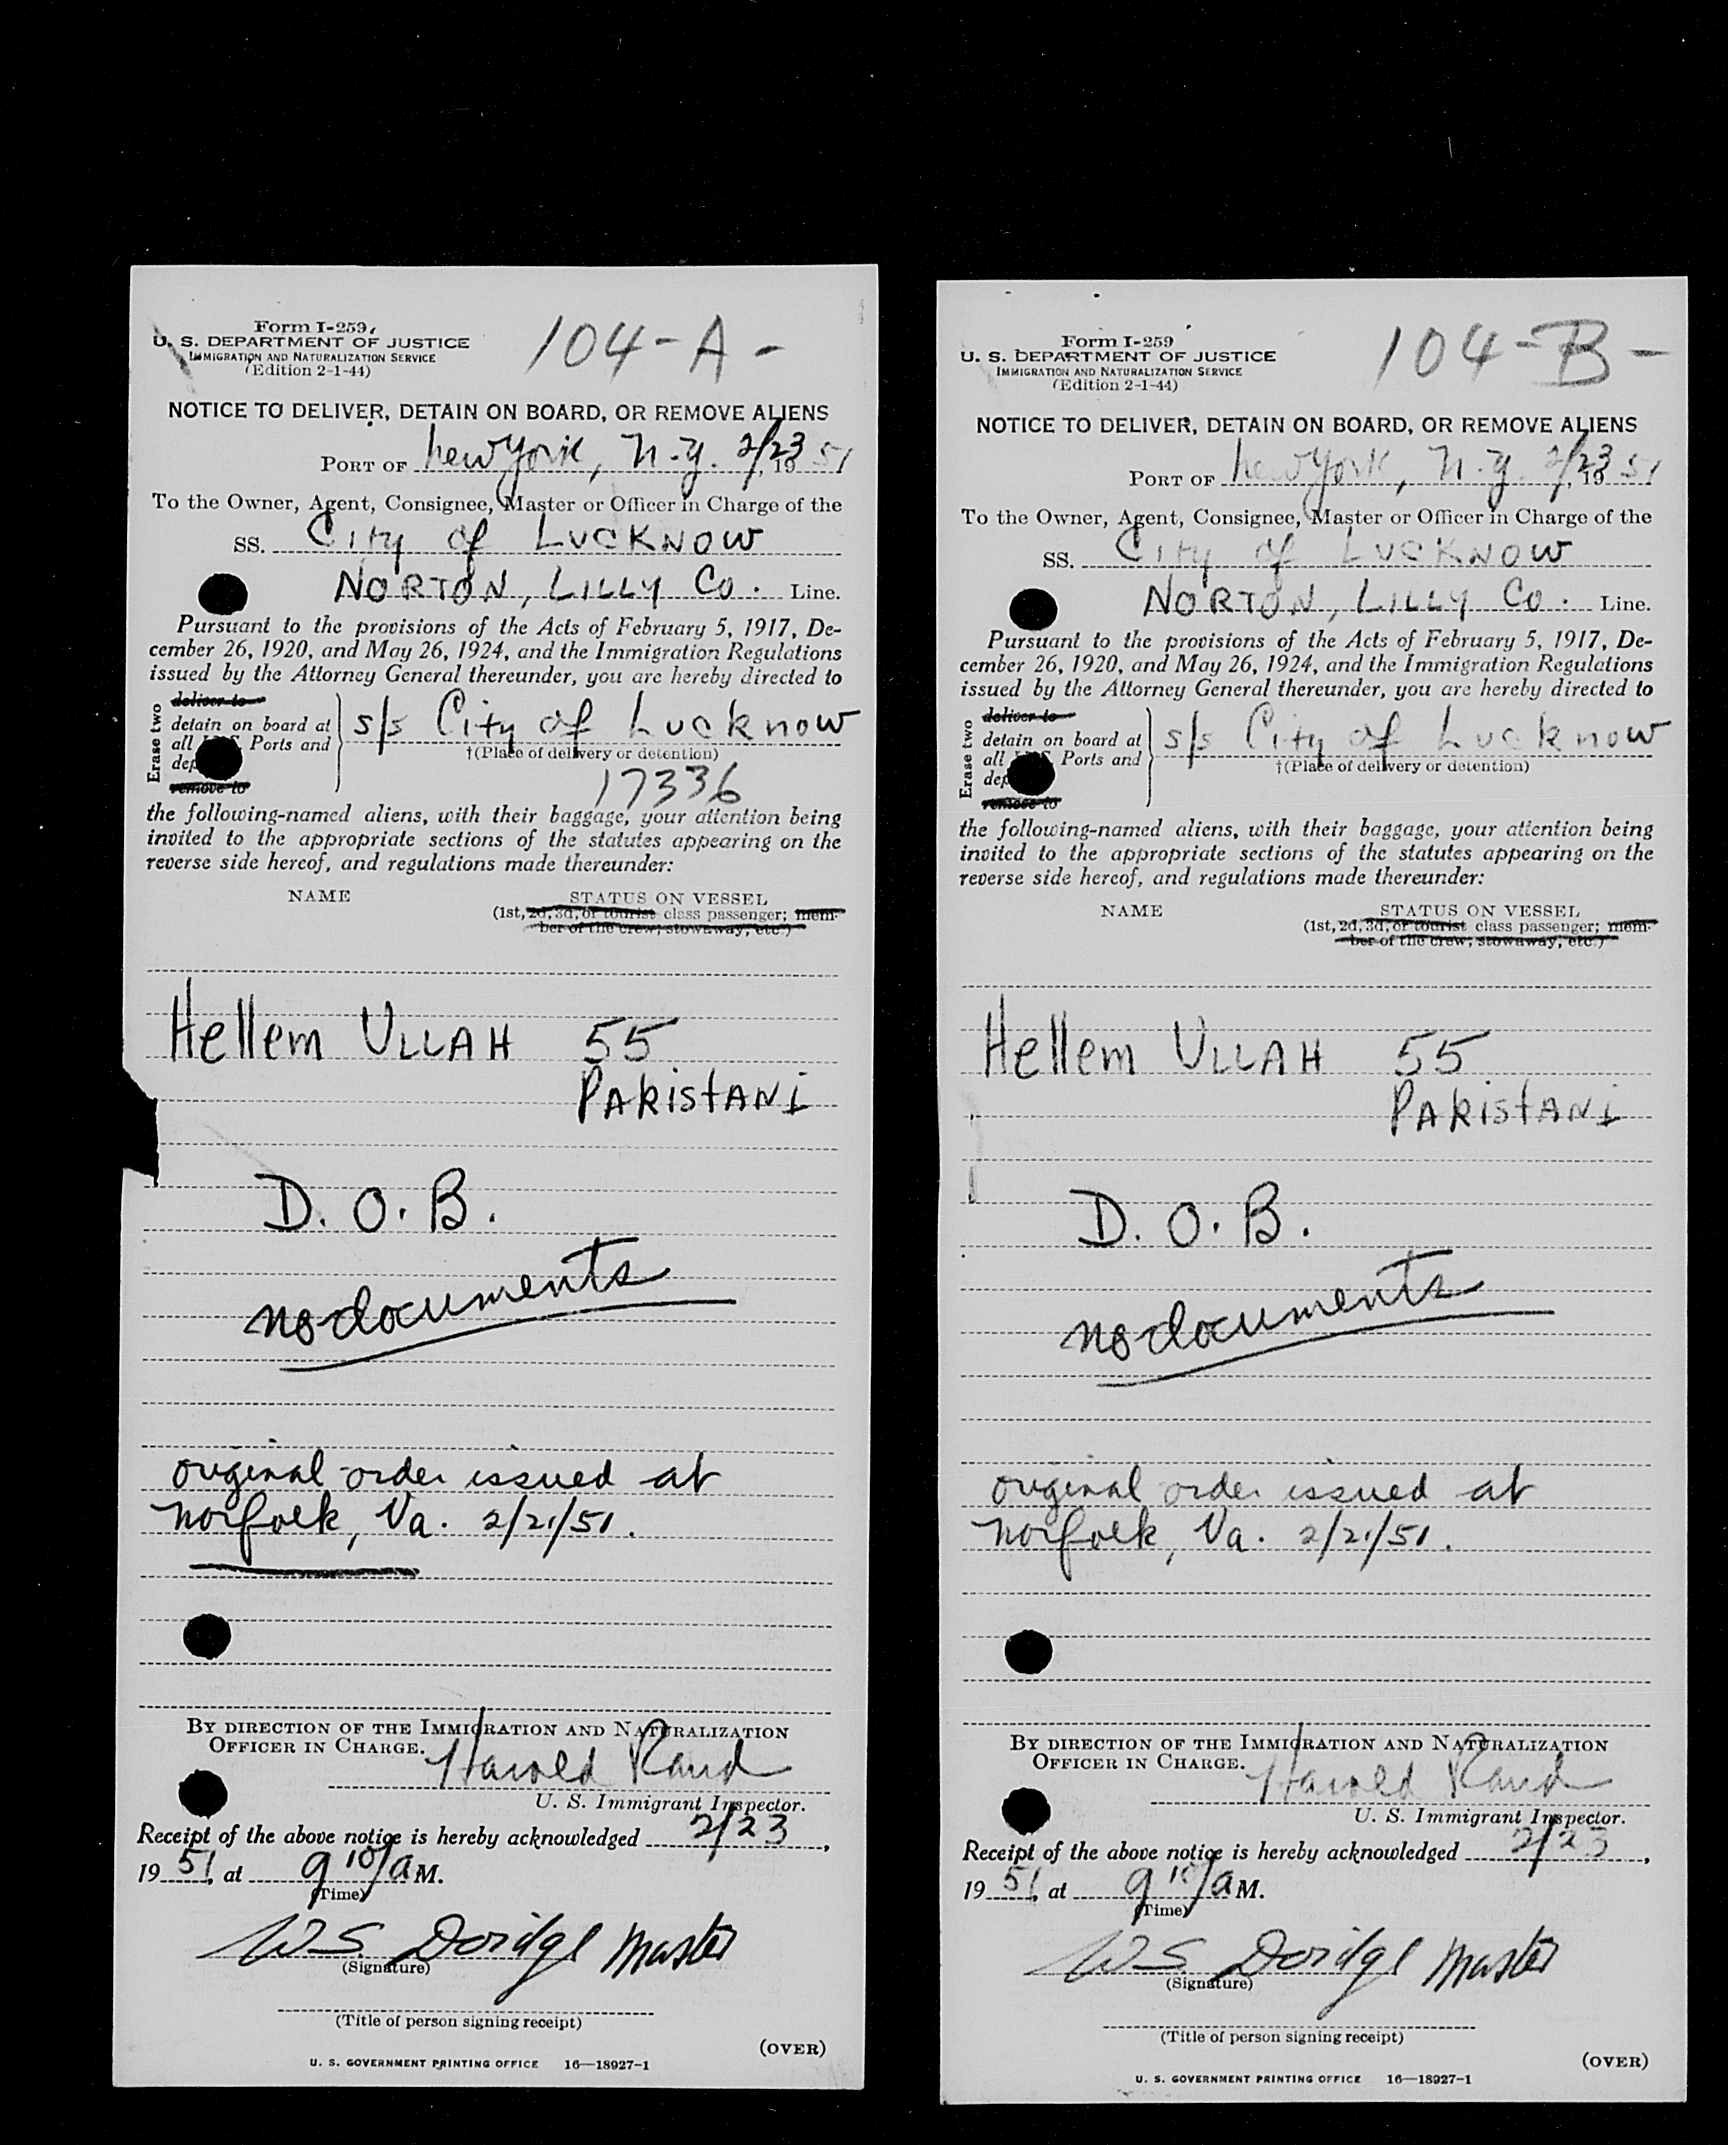 Form I-259
U. S. DEPARTMENT OF JUSTICE
IMMIGRATION AND NATURALIZATION SERVICE
(Edition 2-1-44)
104-A-
NOTICE TO DELIVER, DETAIN ON BOARD, OR REMOVE ALIENS
PORT OF New York, N.Y. 2/23, 1951
To the Owner, Agent, Consignee, Master or Officer in Charge of the
SS. City of LUCKNOW
NORTON, LILLY Co. Line.
Pursuant to the provisions of the Acts of February 5, 1917, De-
cember 26, 1920, and May 26, 1924, and the Immigration Regulations
issued by the Attorney General thereunder, you are hereby directed to
Erase two
deliver to
detain on board at
all Ports and
remove to
s/s City of Lucknow
†(Place of delivery or detention)
17336
the following-named aliens, with their baggage, your attention being
invited to the appropriate sections of the statutes appearing on the
reverse side hereof, and regulations made thereunder:
NAME STATUS ON VESSEL
(1st, 2d, 3d, or tourist class passenger; mem-
ber of the crew; stowaway, etc.)
Hellem ULLAH 55
PAkistANi
D. O. B.
no documents
original order issued at
Norfolk, Va. 2/21/51.
BY DIRECTION OF THE IMMIGRATION AND NATURALIZATION
OFFICER IN CHARGE.
Harold Rand
U. S. Immigrant Inspector.
Receipt of the above notice is hereby acknowledged 2/23,
1951, at 9 10/a M.
(Time)
WS Doridge Master
(Signature)
(Title of person signing receipt)
(OVER)
U. S. GOVERNMENT PRINTING OFFICE 16—18927-1
Form I-259
U. S. DEPARTMENT OF JUSTICE
IMMIGRATION AND NATURALIZATION SERVICE
(Edition 2-1-44)
104-B-
NOTICE TO DELIVER, DETAIN ON BOARD, OR REMOVE ALIENS
PORT OF New York, N.Y. 2/23, 1951
To the Owner, Agent, Consignee, Master or Officer in Charge of the
SS. City of LUCKNOW
NORTON, LILLY Co. Line.
Pursuant to the provisions of the Acts of February 5, 1917, De-
cember 26, 1920, and May 26, 1924, and the Immigration Regulations
issued by the Attorney General thereunder, you are hereby directed to
Erase two
deliver to
detain on board at
all Ports and
remove to
s/s City of Lucknow
†(Place of delivery or detention)
the following-named aliens, with their baggage, your attention being
invited to the appropriate sections of the statutes appearing on the
reverse side hereof, and regulations made thereunder:
NAME STATUS ON VESSEL
(1st, 2d, 3d, or tourist class passenger; mem-
ber of the crew; stowaway, etc.)
Hellem ULLAH 55
PAkistANi
D. O. B.
no documents
original order issued at
Norfolk, Va. 2/21/51.
BY DIRECTION OF THE IMMIGRATION AND NATURALIZATION
OFFICER IN CHARGE.
Harold Rand
U. S. Immigrant Inspector.
Receipt of the above notice is hereby acknowledged 2/23,
1951, at 9 10/a M.
(Time)
WS Doridge Master
(Signature)
(Title of person signing receipt)
(OVER)
U. S. GOVERNMENT PRINTING OFFICE 16—18927-1